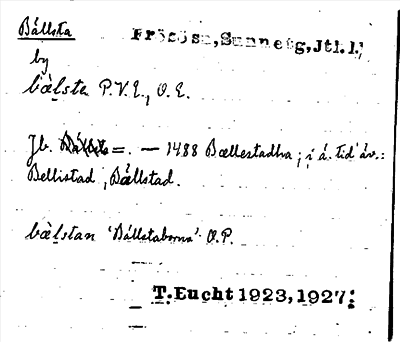 Bállsta
Frösö sn, Sunne tg, Jtl. l.
by
bæ̀l̥sta P.V.E., O.E.
Jb. =. — 1488 Bællestadha; i á. tid äv.:
Bellistad, Bållstad.
bæ̀l̥stan 'Bállstaborna' O.P.
T. Eucht 1923, 1927.